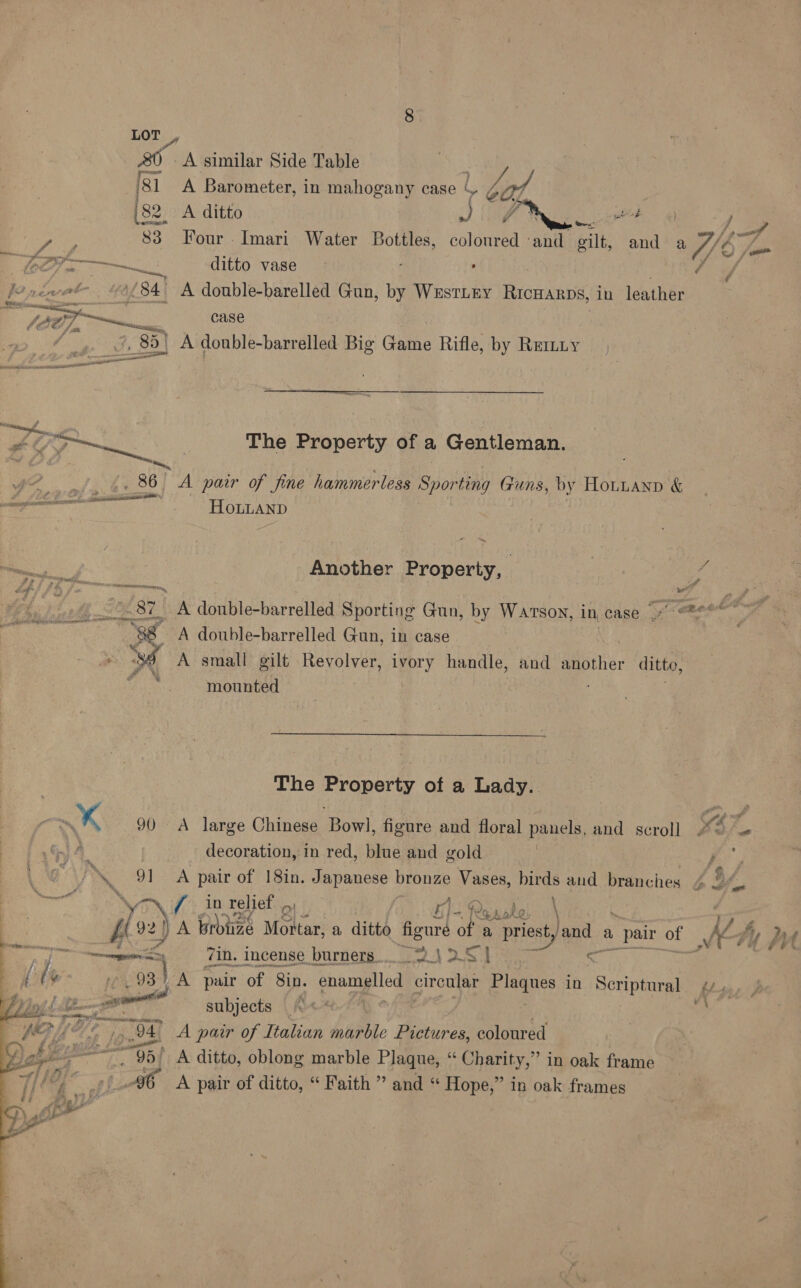 8
LOT
80 A similar Side Table
81 A Barometer, in mahogany case
82 A ditto
83 Four Imari Water Bottles, coloured and gilt, and a
ditto vase
84 A double-barelled Gun, by WESTLEY RICHARDS, in leather
case
85 A double-barrelled Big Game Rifle, by REILLY
The Property of a Gentleman.
86 A pair of fine hammerless Sporting Guns, by HOLLAND &
HOLLAND
Another Property,
87 A double-barrelled Sporting Gun, by WATSON, in case
88 A double-barrelled Gun, in case
A small gilt Revolver, ivory handle, and another ditto,
mounted
The Property of a Lady.
90 A large Chinese Bowl, figure and floral panels, and scroll
decoration, in red, blue and gold
91 A pair of 18in. Japanese bronze Vases, birds and branches
in relief
92 A Bronze Mortar, a ditto figure of a priest, and a pair of
7in. incense burners
93 A pair of 8in. enamelled circular Plaques in Scriptural
subjects
94 A pair of Italian marble Pictures, coloured
95 A ditto, oblong marble Plaque, “ Charity,” in oak frame
96 A pair of ditto, “ Faith ” and “ Hope,” in oak frames